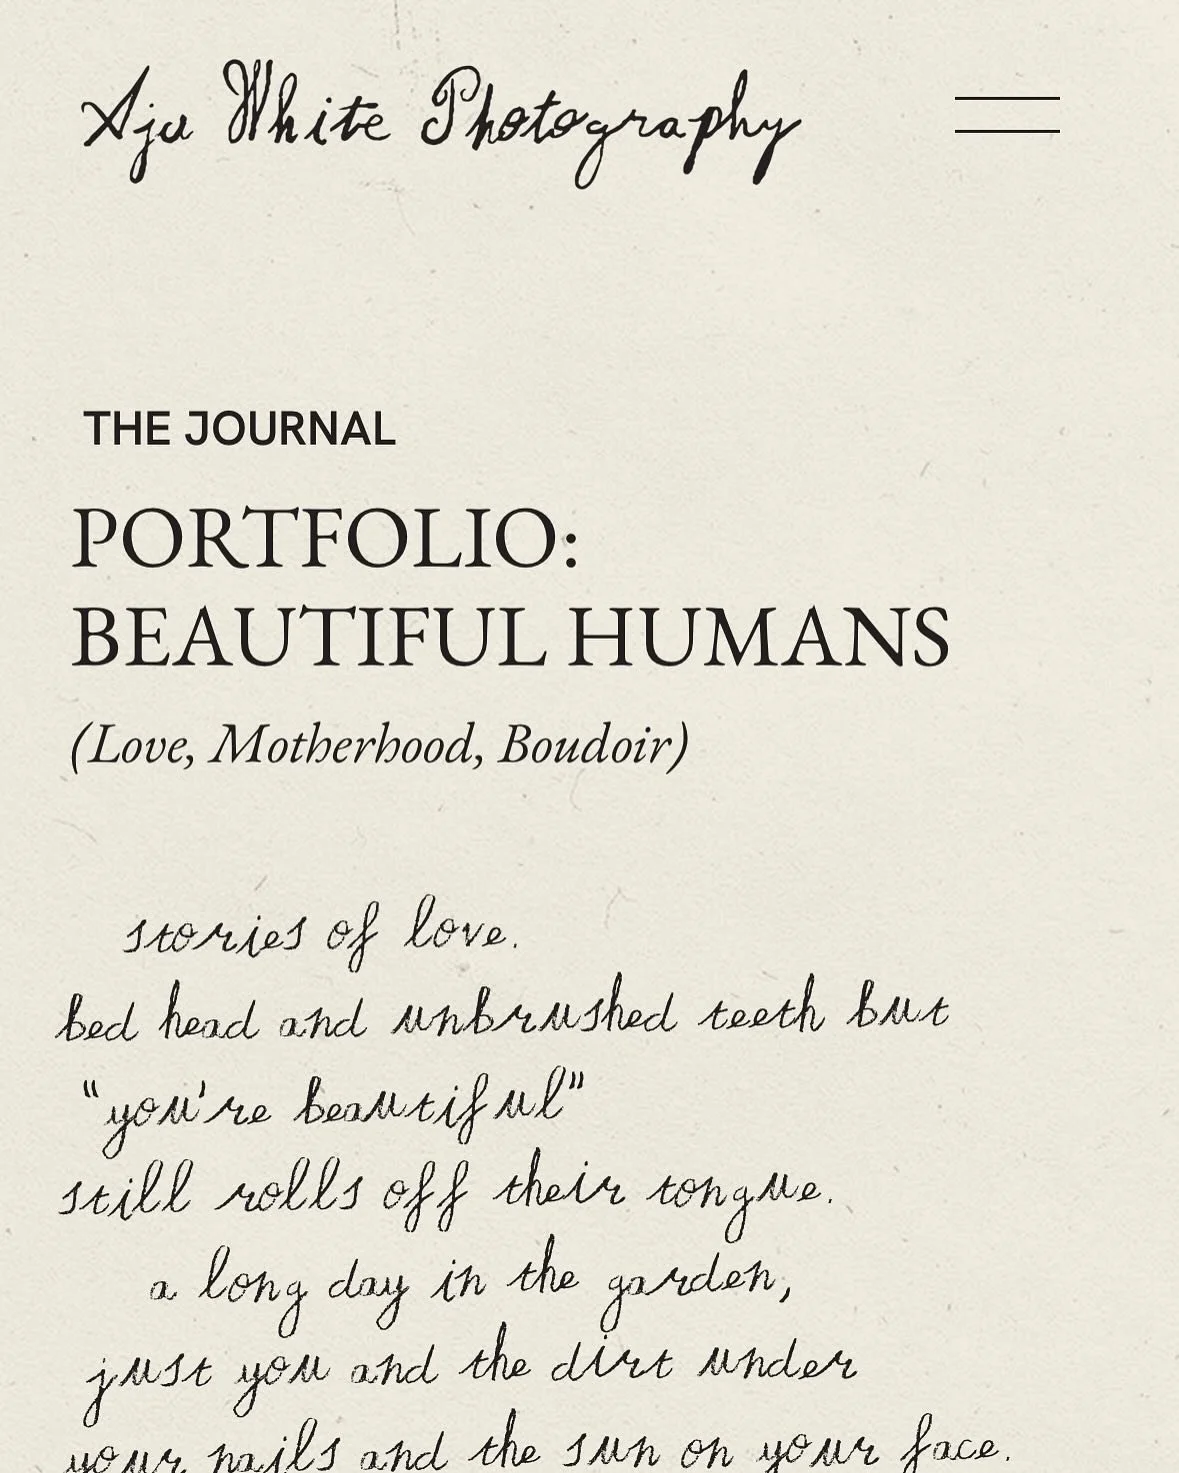 Aja White Photography
THE JOURNAL
PORTFOLIO:
BEAUTIFUL HUMANS
(Love, Motherhood, Boudoir)
stories of love.
bed head and unbrushed teeth but
“you're beautiful”
still rolls off their tongue.
a long day in the garden,
just you and the dirt under
your nails and the sun on your face.